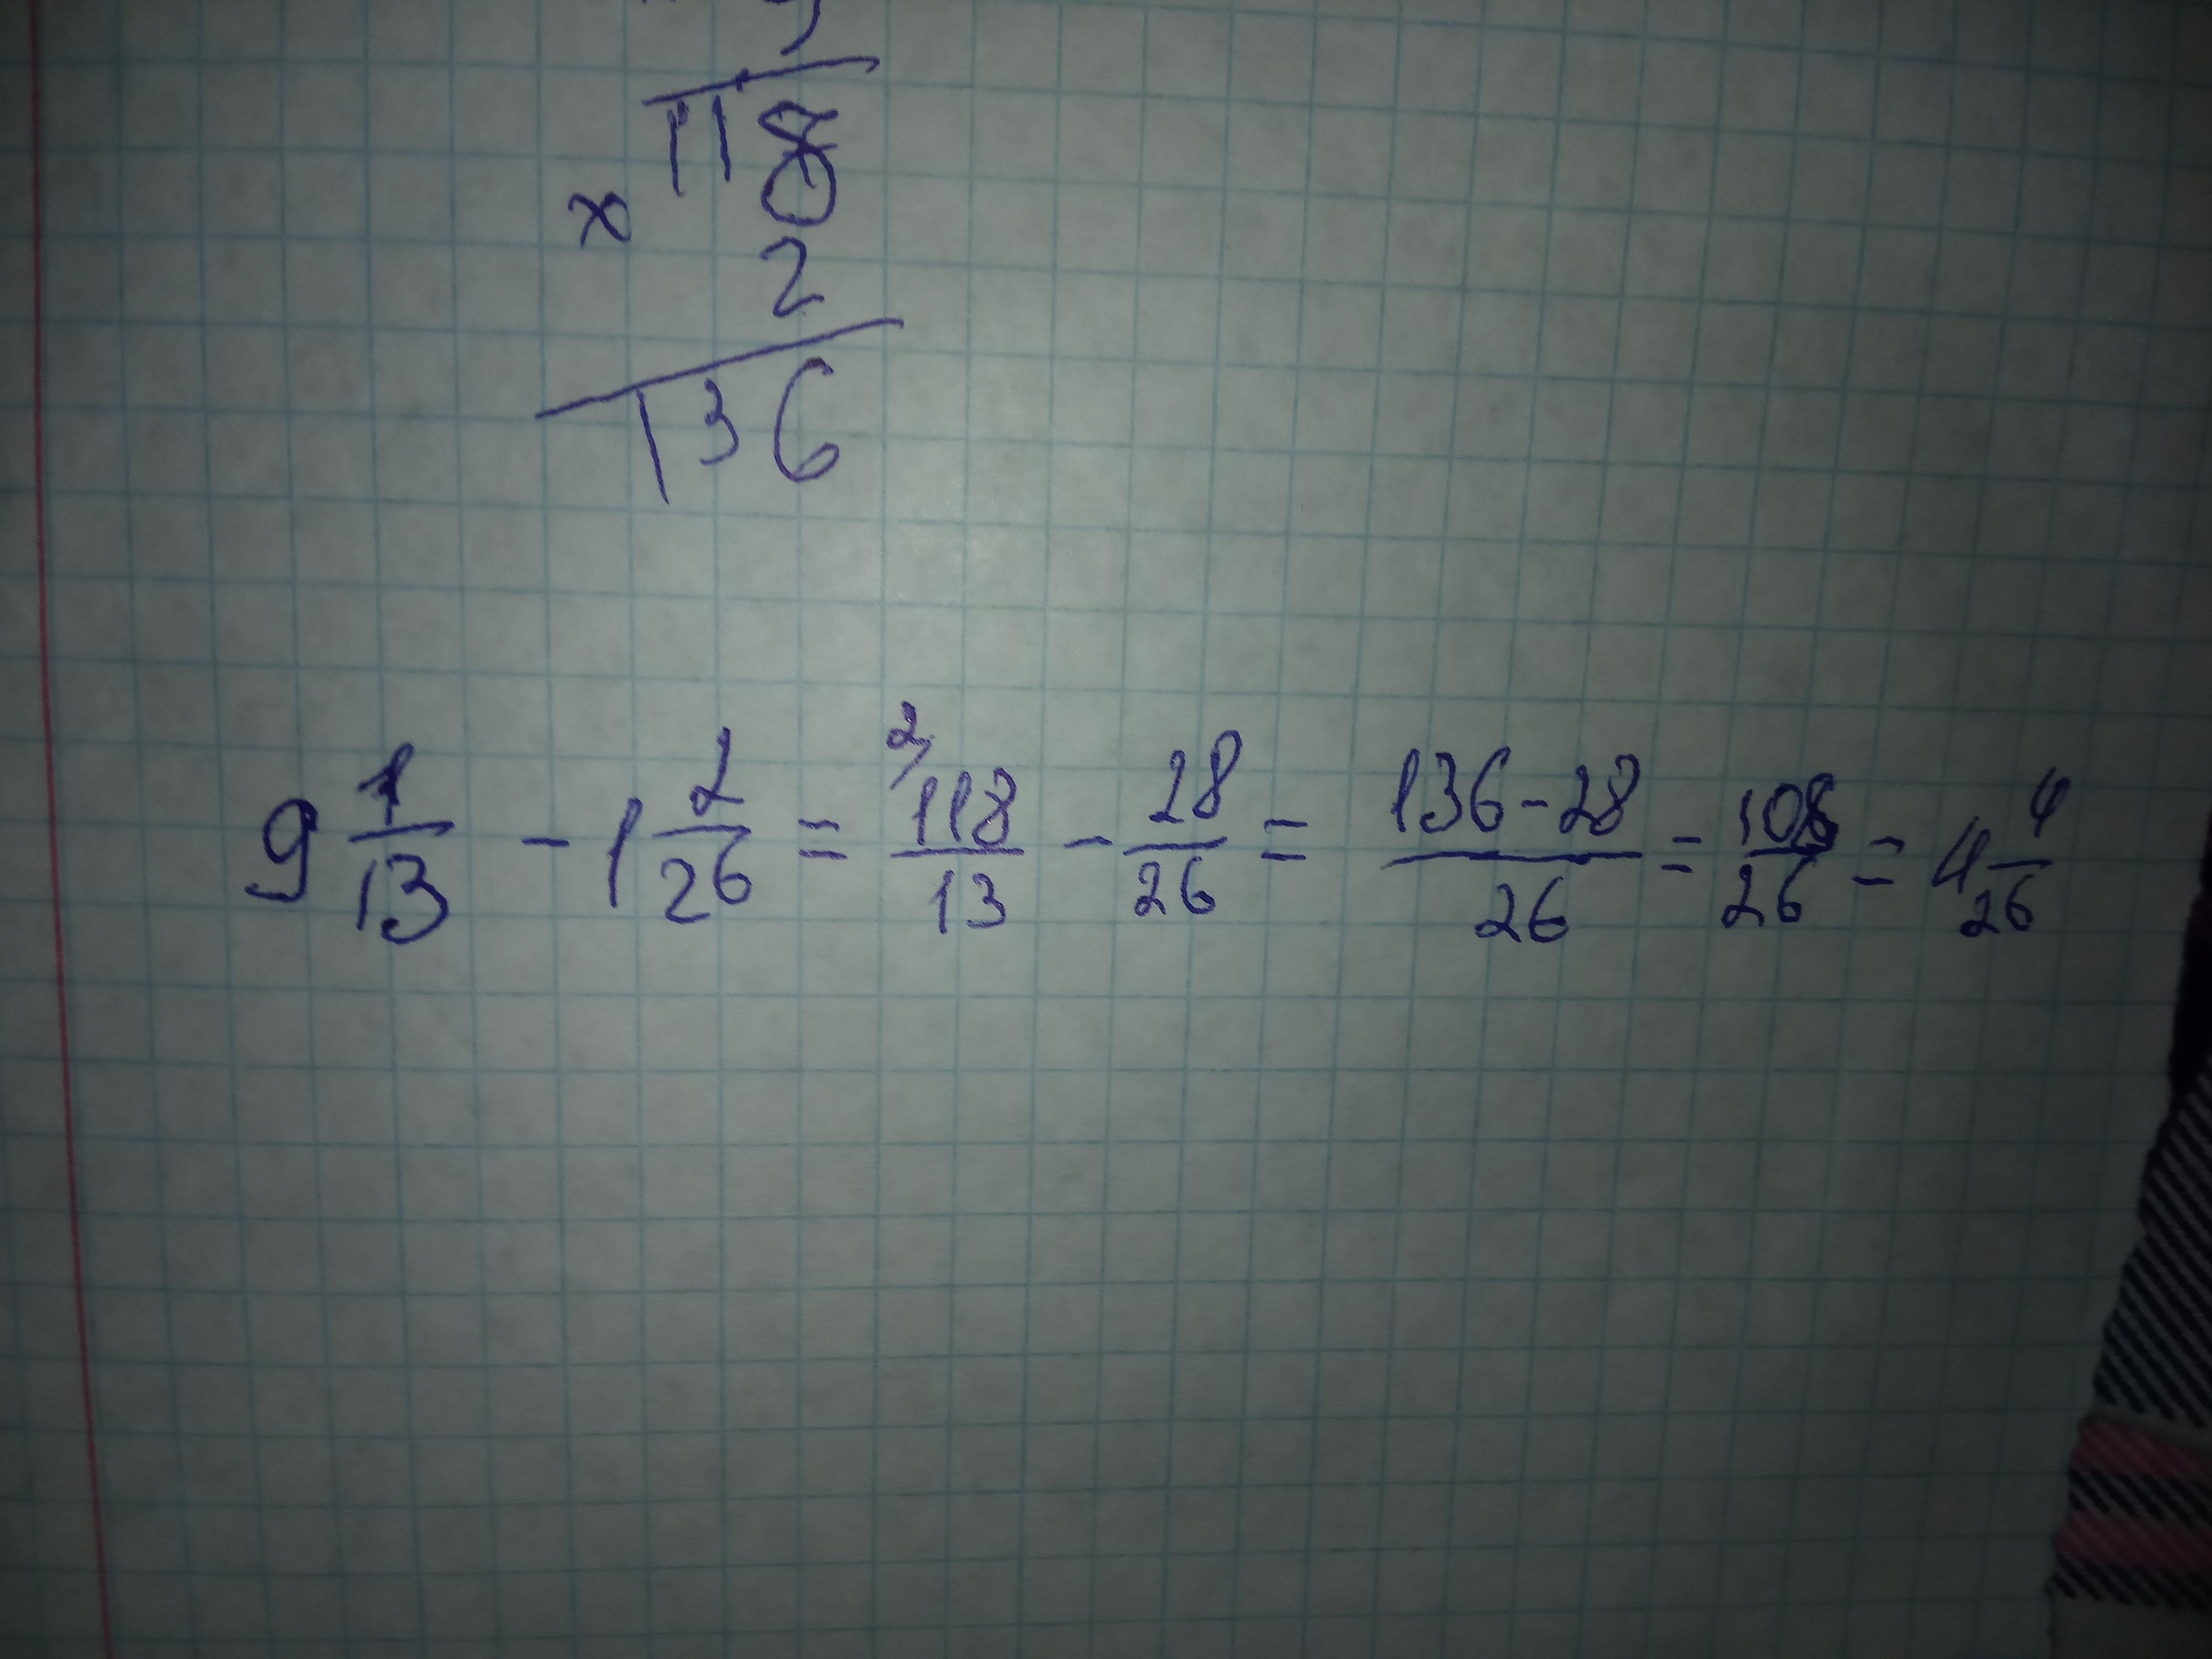 118
× 2
136
9 1/13 - 1 2/26 = 2/ 118/13 - 28/26 = 136-28/26 = 108/26 = 4 4/26